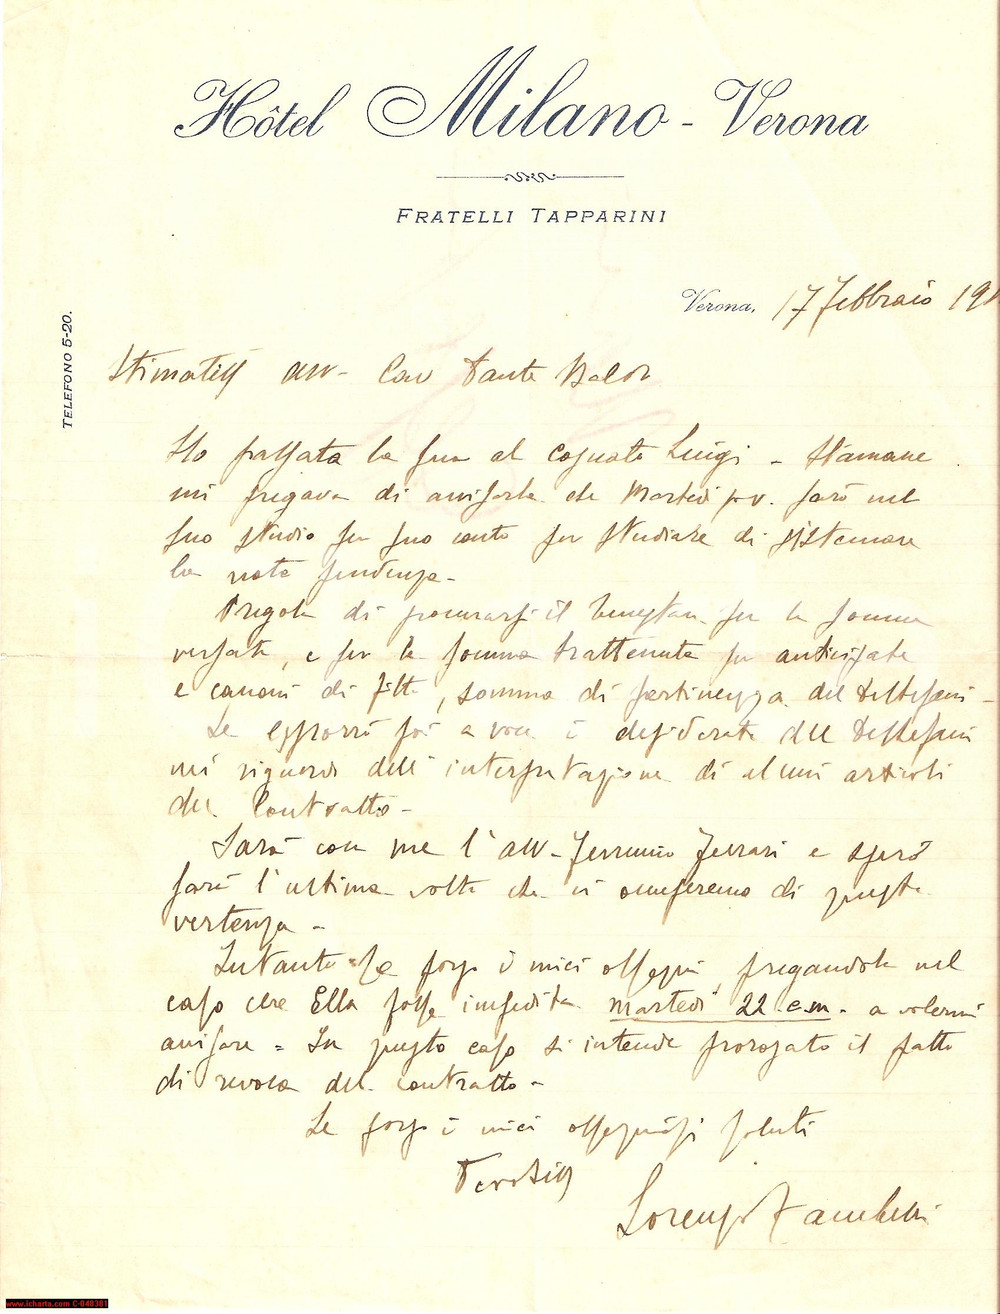 Hôtel Milano - Verona
FRATELLI TAPPARINI
TELEFONO 5-20.
Verona, 17 febbraio 191
Stimatiss avv- Cav Dante
Ho passata la sua al cognato Luigi - Stamane
mi pregava di avvisarla che Martedì p.v. sarò nel
suo studio per suo conto per studiare di sistemare
la nota pendenza -
Pregola di procurarsi il benestare per la somma
versata, e per la somma trattenuta per anticipate
e canoni di fitto, somma di pertinenza del DeStefani -
Le esporrò poi a voce i desiderata del DeStefani
nei riguardi dell'interpretazione di alcuni articoli
del Contratto -
Sarà con me l'avv- Ferruccio Ferrari e spero
sarà l'ultima volta che ci occuperemo di questa
vertenza -
Intanto Le porgo i miei ossequi, pregandola nel
caso che Ella fosse impedita martedì 22 c.m. - a volermi
avvisare = In questo caso si intende prorogato il patto
di revoca del contratto -
Le porgo i miei ossequiosi saluti
Devotiss
Lorenzo
www.icharta.com C-048381